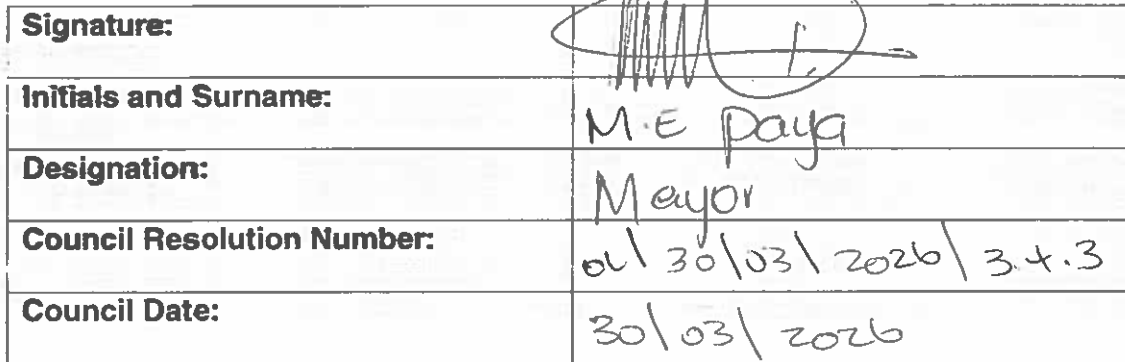 Signature:
Initials and Surname:
M.E Paya
Designation:
Mayor
Council Resolution Number:
30\03\2026\ 3.4.3
Council Date:
30\03\ 2026